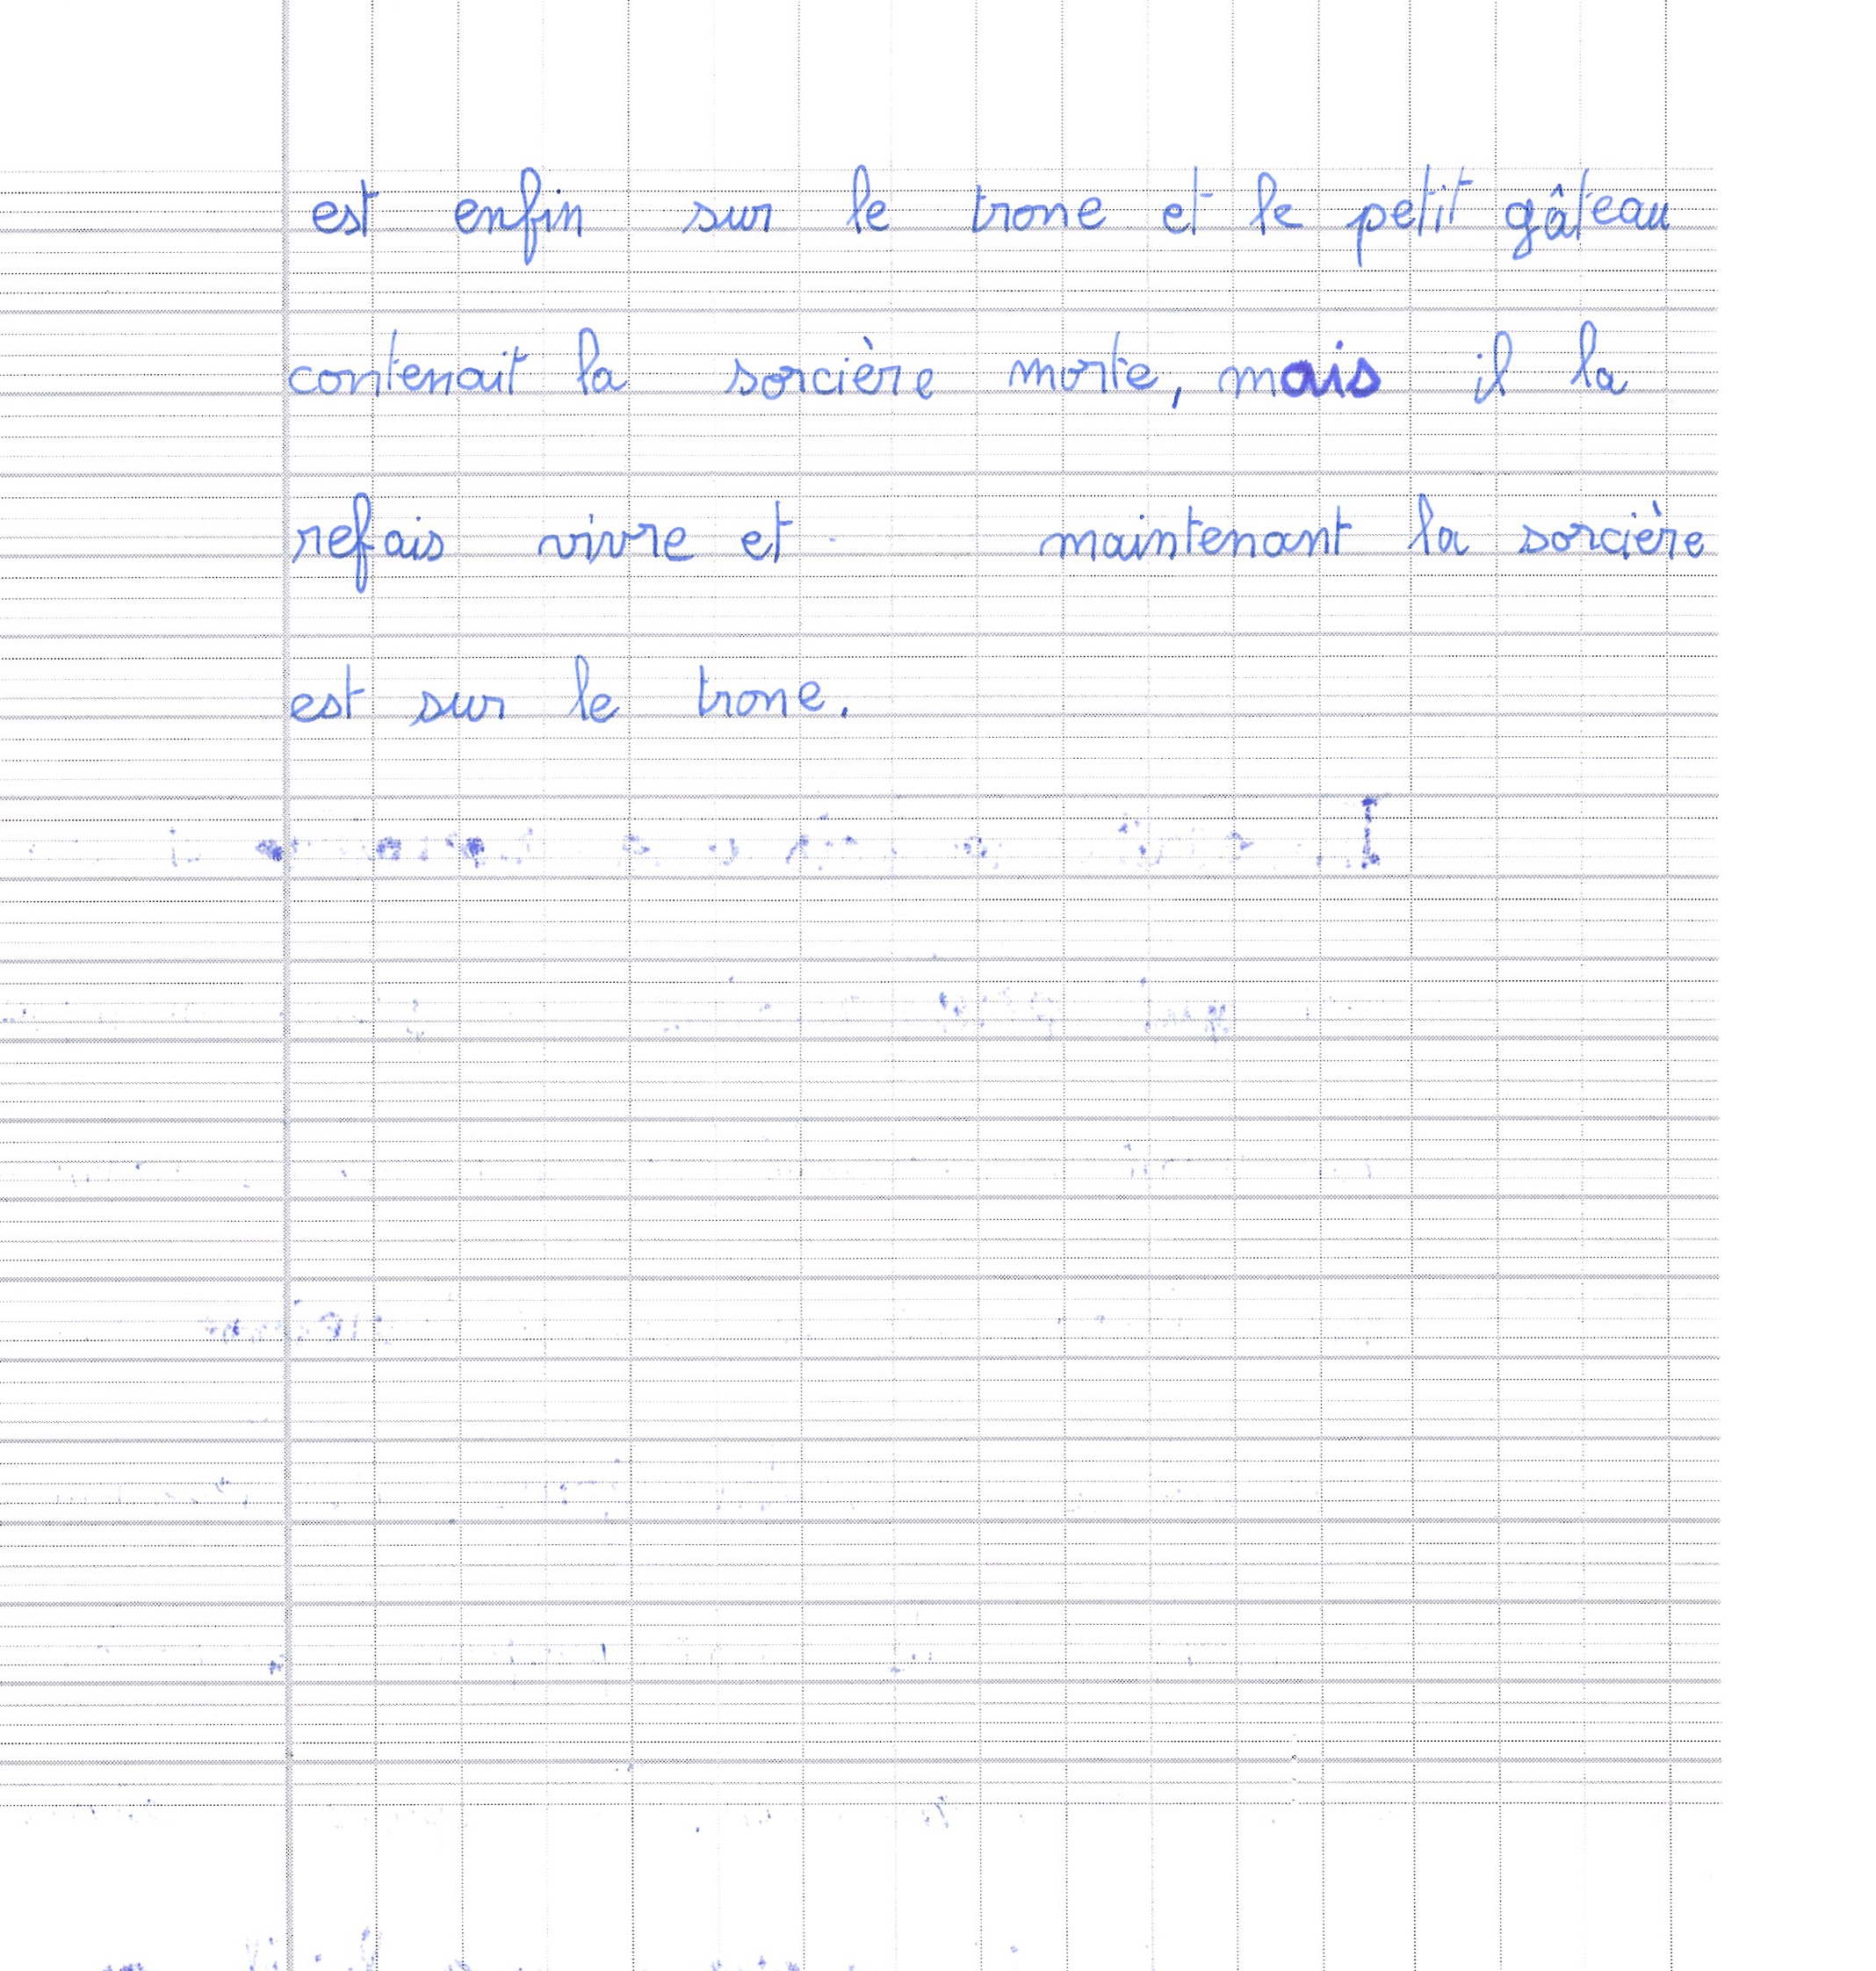 est enfin sur le trone et le petit gâteau
contenait la sorcière morte, mais il la
refais vivre et maintenant la sorcière
est sur le trone.